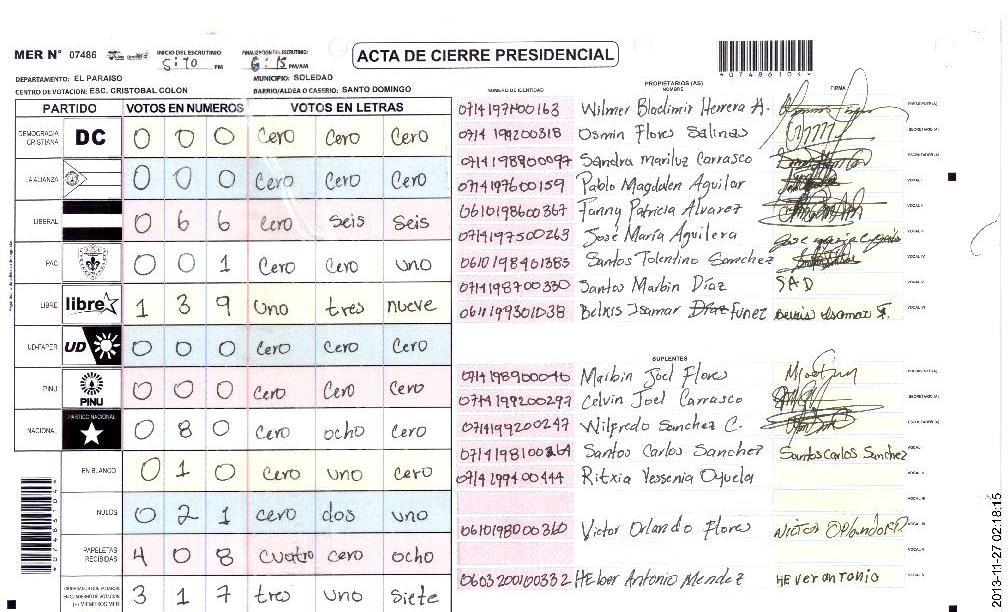 MER N° 07486 INICIO DEL ESCRUTINIO: 5:10 PM FINALIZACION DEL ESCRUTINIO: 6:15 PM/AM
ACTA DE CIERRE PRESIDENCIAL
*07486104*
DEPARTAMENTO: EL PARAISO MUNICIPIO: SOLEDAD
CENTRO DE VOTACION: ESC. CRISTOBAL COLON BARRIO/ALDEA O CASERIO: SANTO DOMINGO
PARTIDO VOTOS EN NUMEROS VOTOS EN LETRAS
DEMOCRACIA CRISTIANA DC 0 0 0 Cero Cero Cero
LA ALIANZA 0 0 0 Cero Cero Cero
LIBERAL 0 6 6 Cero seis Seis
PAC 0 0 1 Cero Cero uno
LIBRE libre 1 3 9 Uno tres nueve
UD-FAPER UD 0 0 0 Cero Cero Cero
PINU PINU 0 0 0 Cero Cero Cero
NACIONAL PARTIDO NACIONAL 0 8 0 Cero ocho Cero
EN BLANCO 0 1 0 Cero uno cero
NULOS 0 2 1 cero dos uno
PAPELETAS RECIBIDAS 4 0 8 Cuatro cero ocho
3 1 7 tres uno siete
NUMERO DE IDENTIDAD PROPIETARIOS (AS) NOMBRE FIRMA
0714197400163 Wilmer Bladimir Herrera A. PRESIDENTE(A)
0714199200318 Osmin Flores Salinas SECRETARIO(A)
0714198900097 Sandra Mariluz Carrasco ESCRUTADOR(A)
0714197600159 Pablo Magdalen Aguilar VOCAL I
0610198600367 Fanny Patricia Alvarez VOCAL II
0714197500263 José María Aguilera
0610198401385 Santos Tolentino Sanchez VOCAL IV
0714198700330 Santos Marbin Díaz SAD VOCAL V
0611199301038 Belkis Isamar Díaz Funez Belkis Isamar F. VOCAL VI
SUPLENTES
0714198900046 Maibin Joel Flores PRESIDENTE(A)
0714199200297 Celvin Joel Carrasco SECRETARIO(A)
0714199200247 Wilfredo Sanchez C. ESCRUTADOR(A)
0714198100264 Santos Carlos Sanchez Santos Carlos Sanchez VOCAL I
0714199400444 Ritxia Yessenia Oyuela VOCAL II
VOCAL III
0610198000360 Victor Orlando Flores Victor Orlando F
VOCAL V
0603200100332 HEber Antonio Mendez HEver antonio
2013-11-27 02:18:15